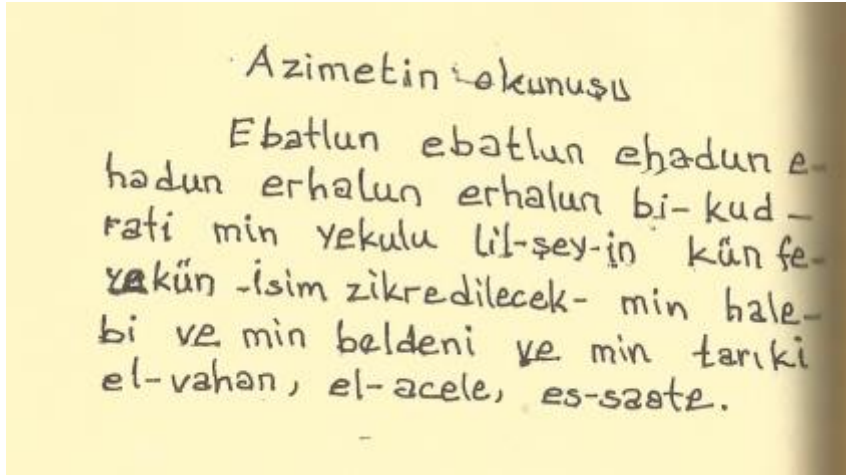 Azimetin okunuşu
Ebatlun ebatlun ehadun e-
hadun erhalun erhalun bi-kud-
rati min yekulu lil-şey-in kün fe-
yekün -isim zikredilecek- min hale-
bi ve min beldeni ve min tarıki
el-vahan, el-acele, es-saate.